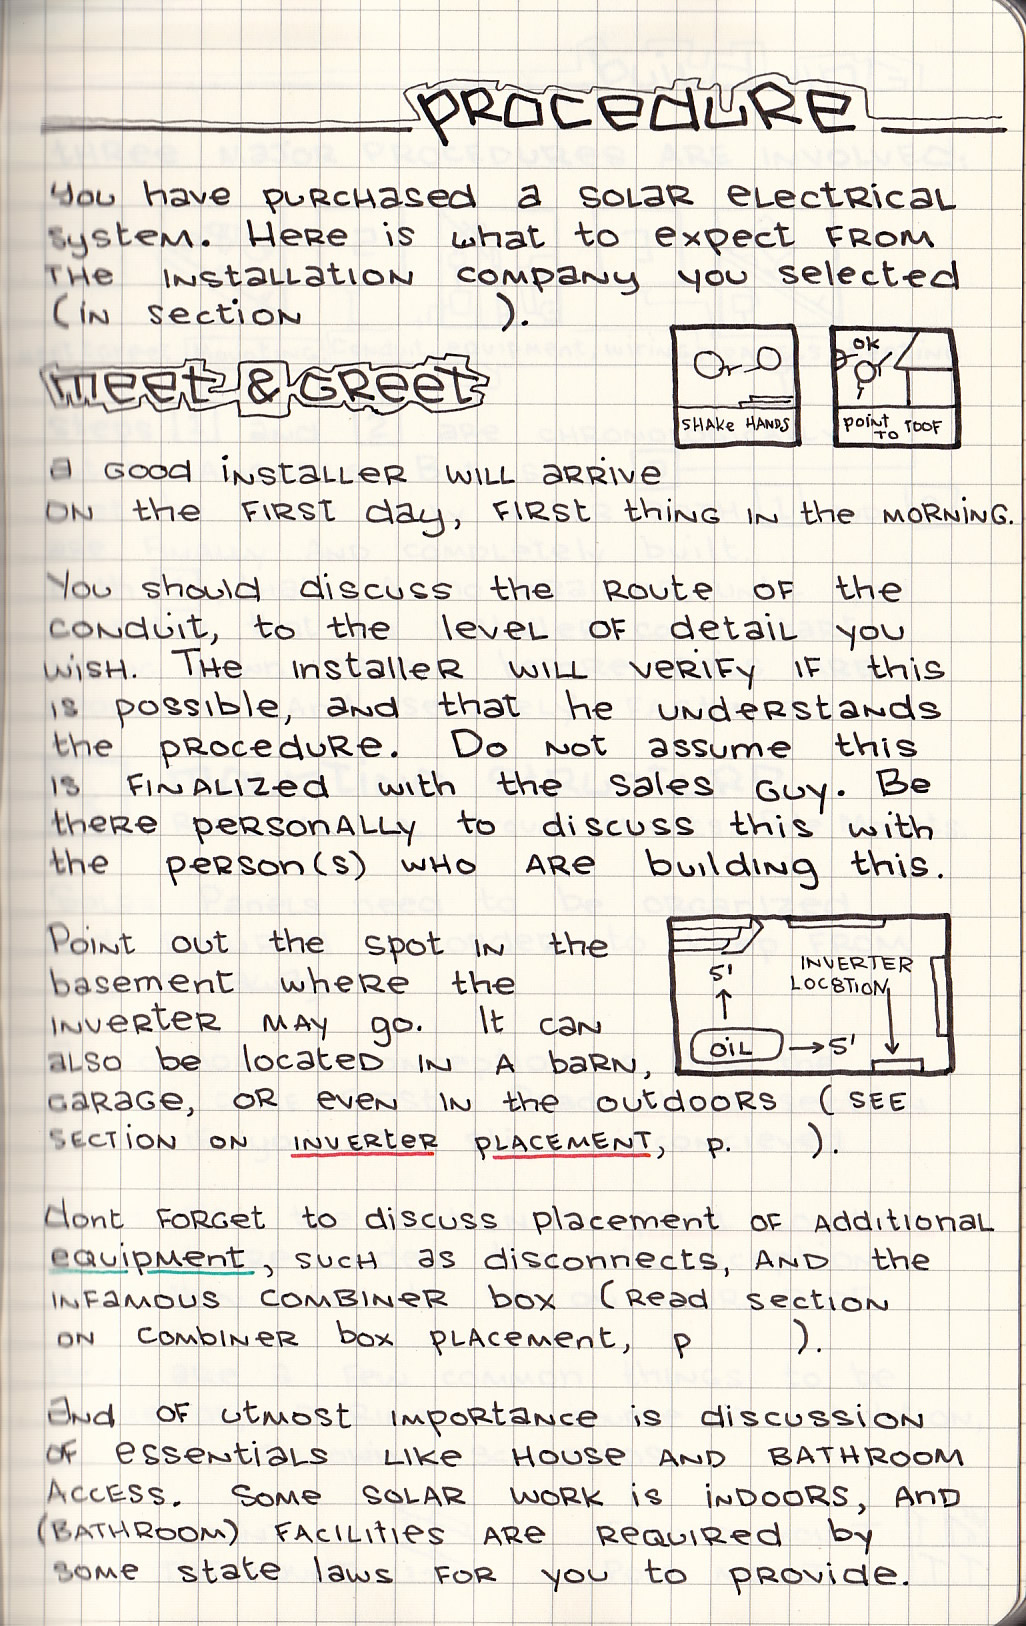 PROCEDURE
You have purchased a solar electrical
system. Here is what to expect from
the installation company you selected
(in section ).
Meet & Greet
SHAKE HANDS
OK
POINT
TO TOOF
A good installer will arrive
on the first day, first thing in the morning.
You should discuss the route of the
conduit, to the level of detail you
wish. The installer will verify if this
is possible, and that he understands
the procedure. Do not assume this
is finalized with the sales guy. Be
there personally to discuss this with
the person(s) who are building this.
Point out the spot in the
basement where the
inverter may go. It can
also be located in a barn,
garage, or even in the outdoors (see
section on inverter placement, p. ).
5'
INVERTER
LOCATION
OIL → 5'
dont forget to discuss placement of additional
equipment, such as disconnects, and the
infamous combiner box (read section
on combiner box placement, p ).
And of utmost importance is discussion
of essentials like house and bathroom
access. Some solar work is indoors, and
(bathroom) facilities are required by
some state laws for you to provide.